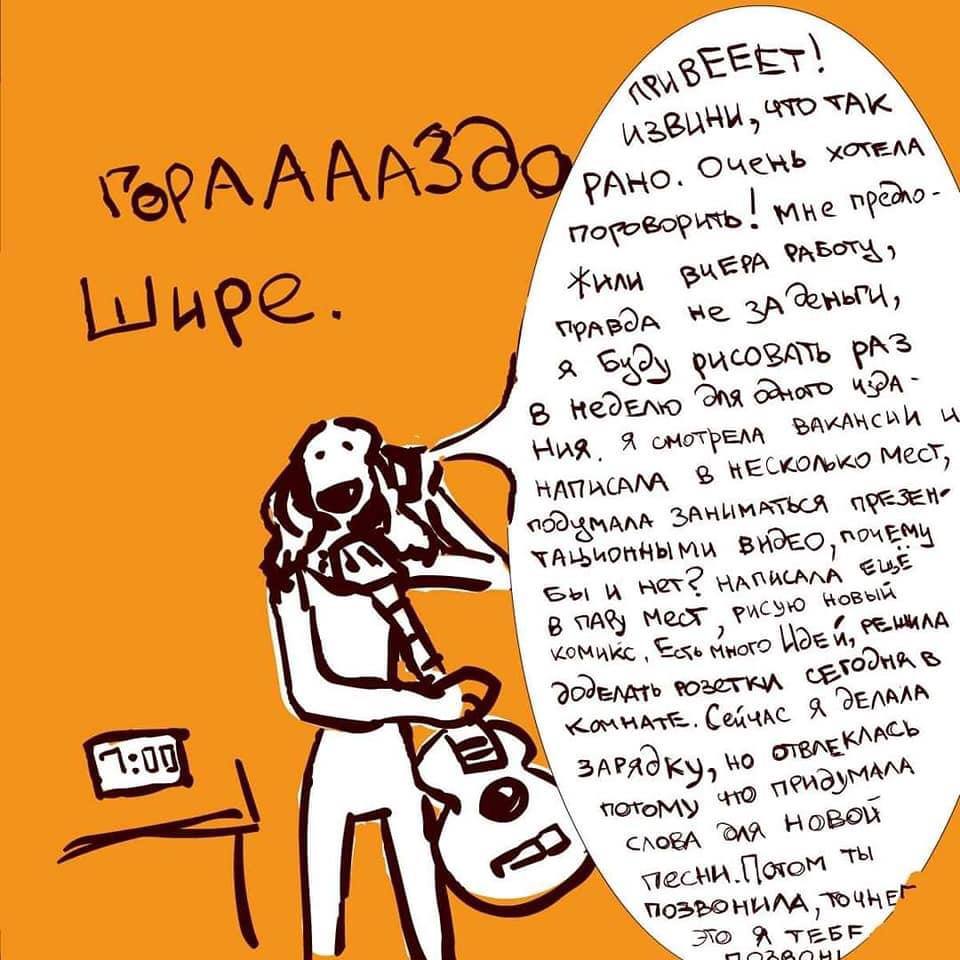 ГОРААААЗдо
Шире.
ПРИВЕЕЕТ!
ИЗВИНИ, ЧТО ТАК
РАНО. Очень хотела
поговорить! Мне предло-
жили вчера работу,
правда не за деньги,
я буду рисовать раз
в неделю для одного изда-
ния. Я смотрела вакансии и
написала в несколько мест,
подумала заниматься презен-
тационными видео, почему
бы и нет? Написала ещё
в пару мест, рисую новый
комикс. Есть много идей, решила
доделать розетки сегодня в
комнате. Сейчас я делала
зарядку, но отвлеклась
потому что придумала
слова для новой
песни. Потом ты
позвонила, точнег
это я тебе
позвони
7:00